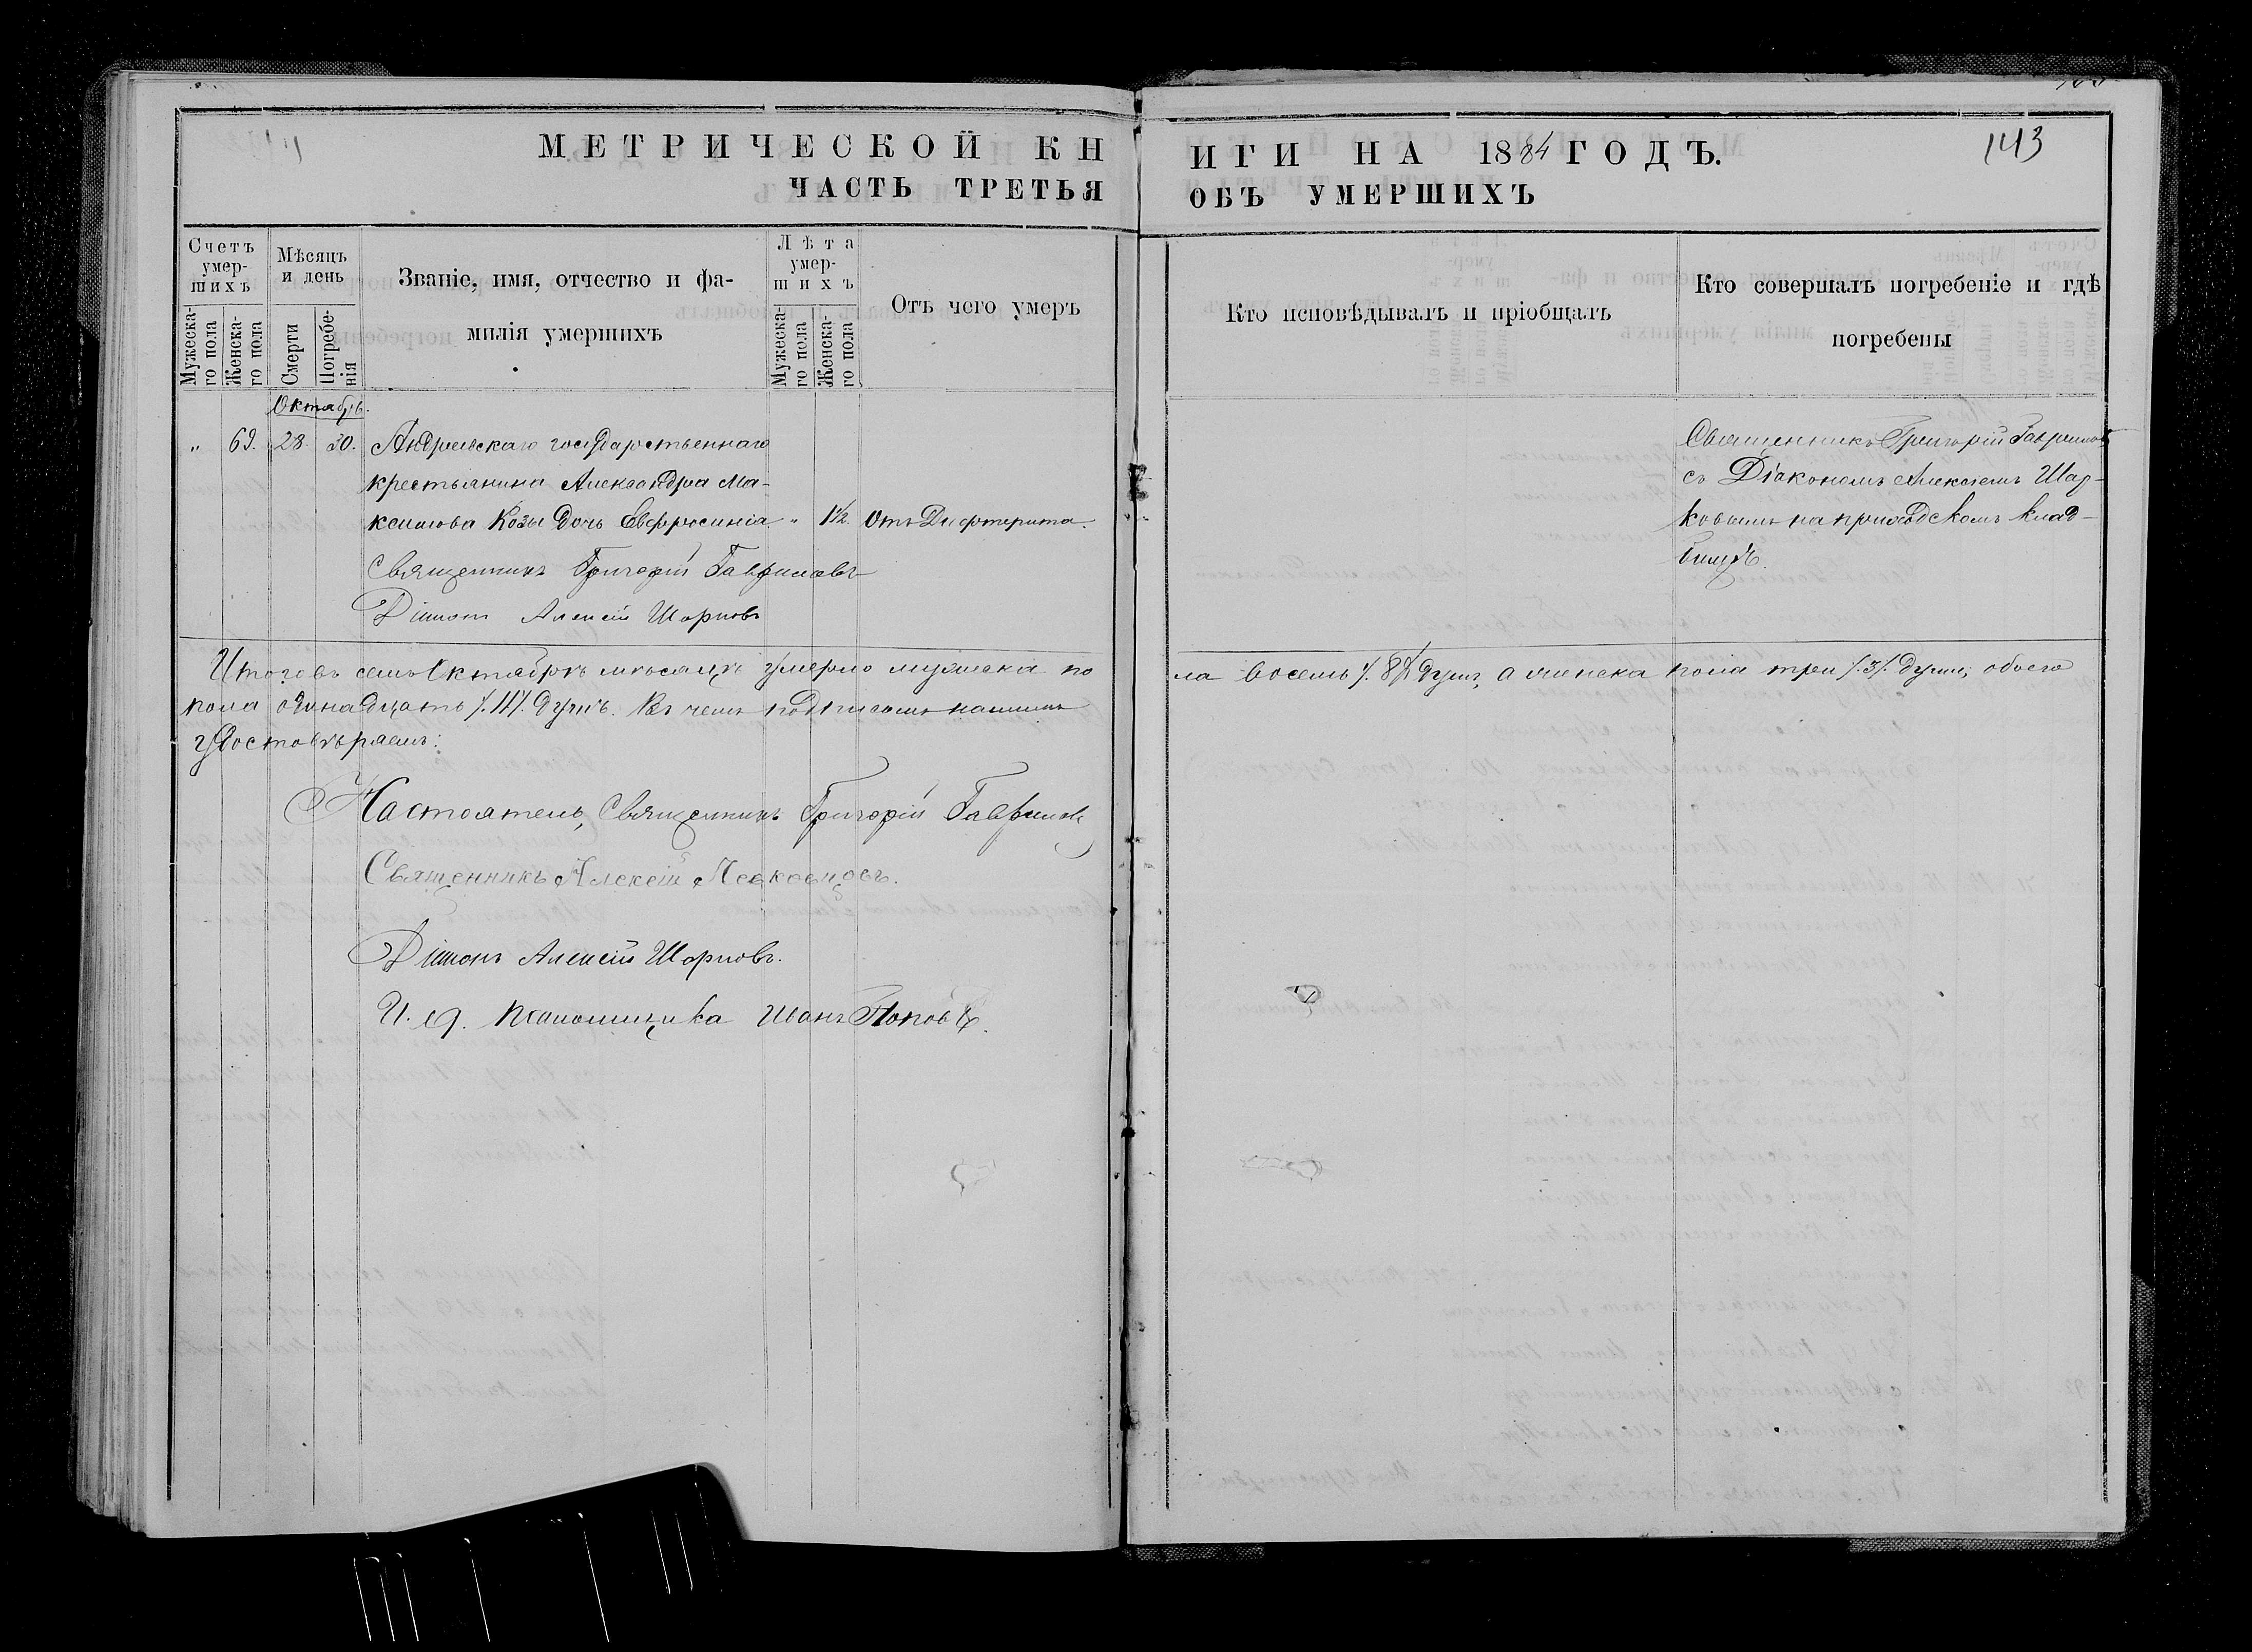 МЕТРИЧЕСКОЙ КНИГИ НА 1884 ГОДЪ.
143
ЧАСТЬ ТРЕТЬЯ ОБЪ УМЕРШИХЪ
Счетъ умер-шихъ
Мужеска-го пола
Женска-го пола
Мѣсяцъ и день
Смерти
Погребе-нія
Званіе, имя, отчество и фа-
милія умершихъ
Лѣта умер-шихъ
Мужеска-го пола
Женска-го пола
Отъ чего умеръ
Кто исповѣдывалъ и пріобщалъ
Кто совершалъ погребеніе и гдѣ
погребены
Октябрь.
" 69. 28. 30. Андреевскаго государственнаго
крестьянина Александра Ма-
ксимова Козы дочь Евфросинія. " 1½. Отъ Дифтерита.
Священникъ Григорій Гавриловъ
Діаконъ Алексій Шарковъ
Священникъ Григорій Гавриловъ
съ Діакономъ Алексіемъ Шар-
ковымъ на приходскомъ клад-
бищѣ.
Итого въ семъ Октябрѣ мѣсяцѣ умерло мужеска по
ла восемь /.8/. душъ, а женска пола три /.3/. души; обоего
пола одинадцать /.11/. душъ. Въ чемъ подписомъ нашимъ
удостовѣряемъ:
Настоятель, Священникъ Григорій Гавриловъ
Священникъ Алексій
Діаконъ Алексій Шарковъ.
И. д. псаломщика Иванъ Поповъ.